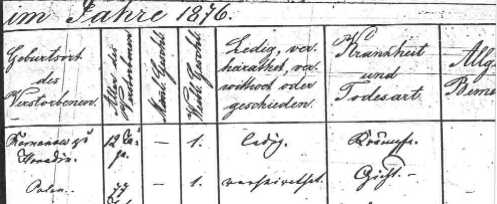 im Jahre 1876.
Geburtsort
des
Verstorbenen.
Alter des
Verstorbenen
Männl. Geschl.
Weibl. Geschl.
Ledig, ver-
hürathet, ver-
wittwet oder
geschieden.
Krankheit
und
Todesart.
Allg.
Beme
zu
12 Ta-
ge.
—
1.
ledig.
Krämpfe.
Polen.
77
—
1.
verheirathet.
Gicht. —